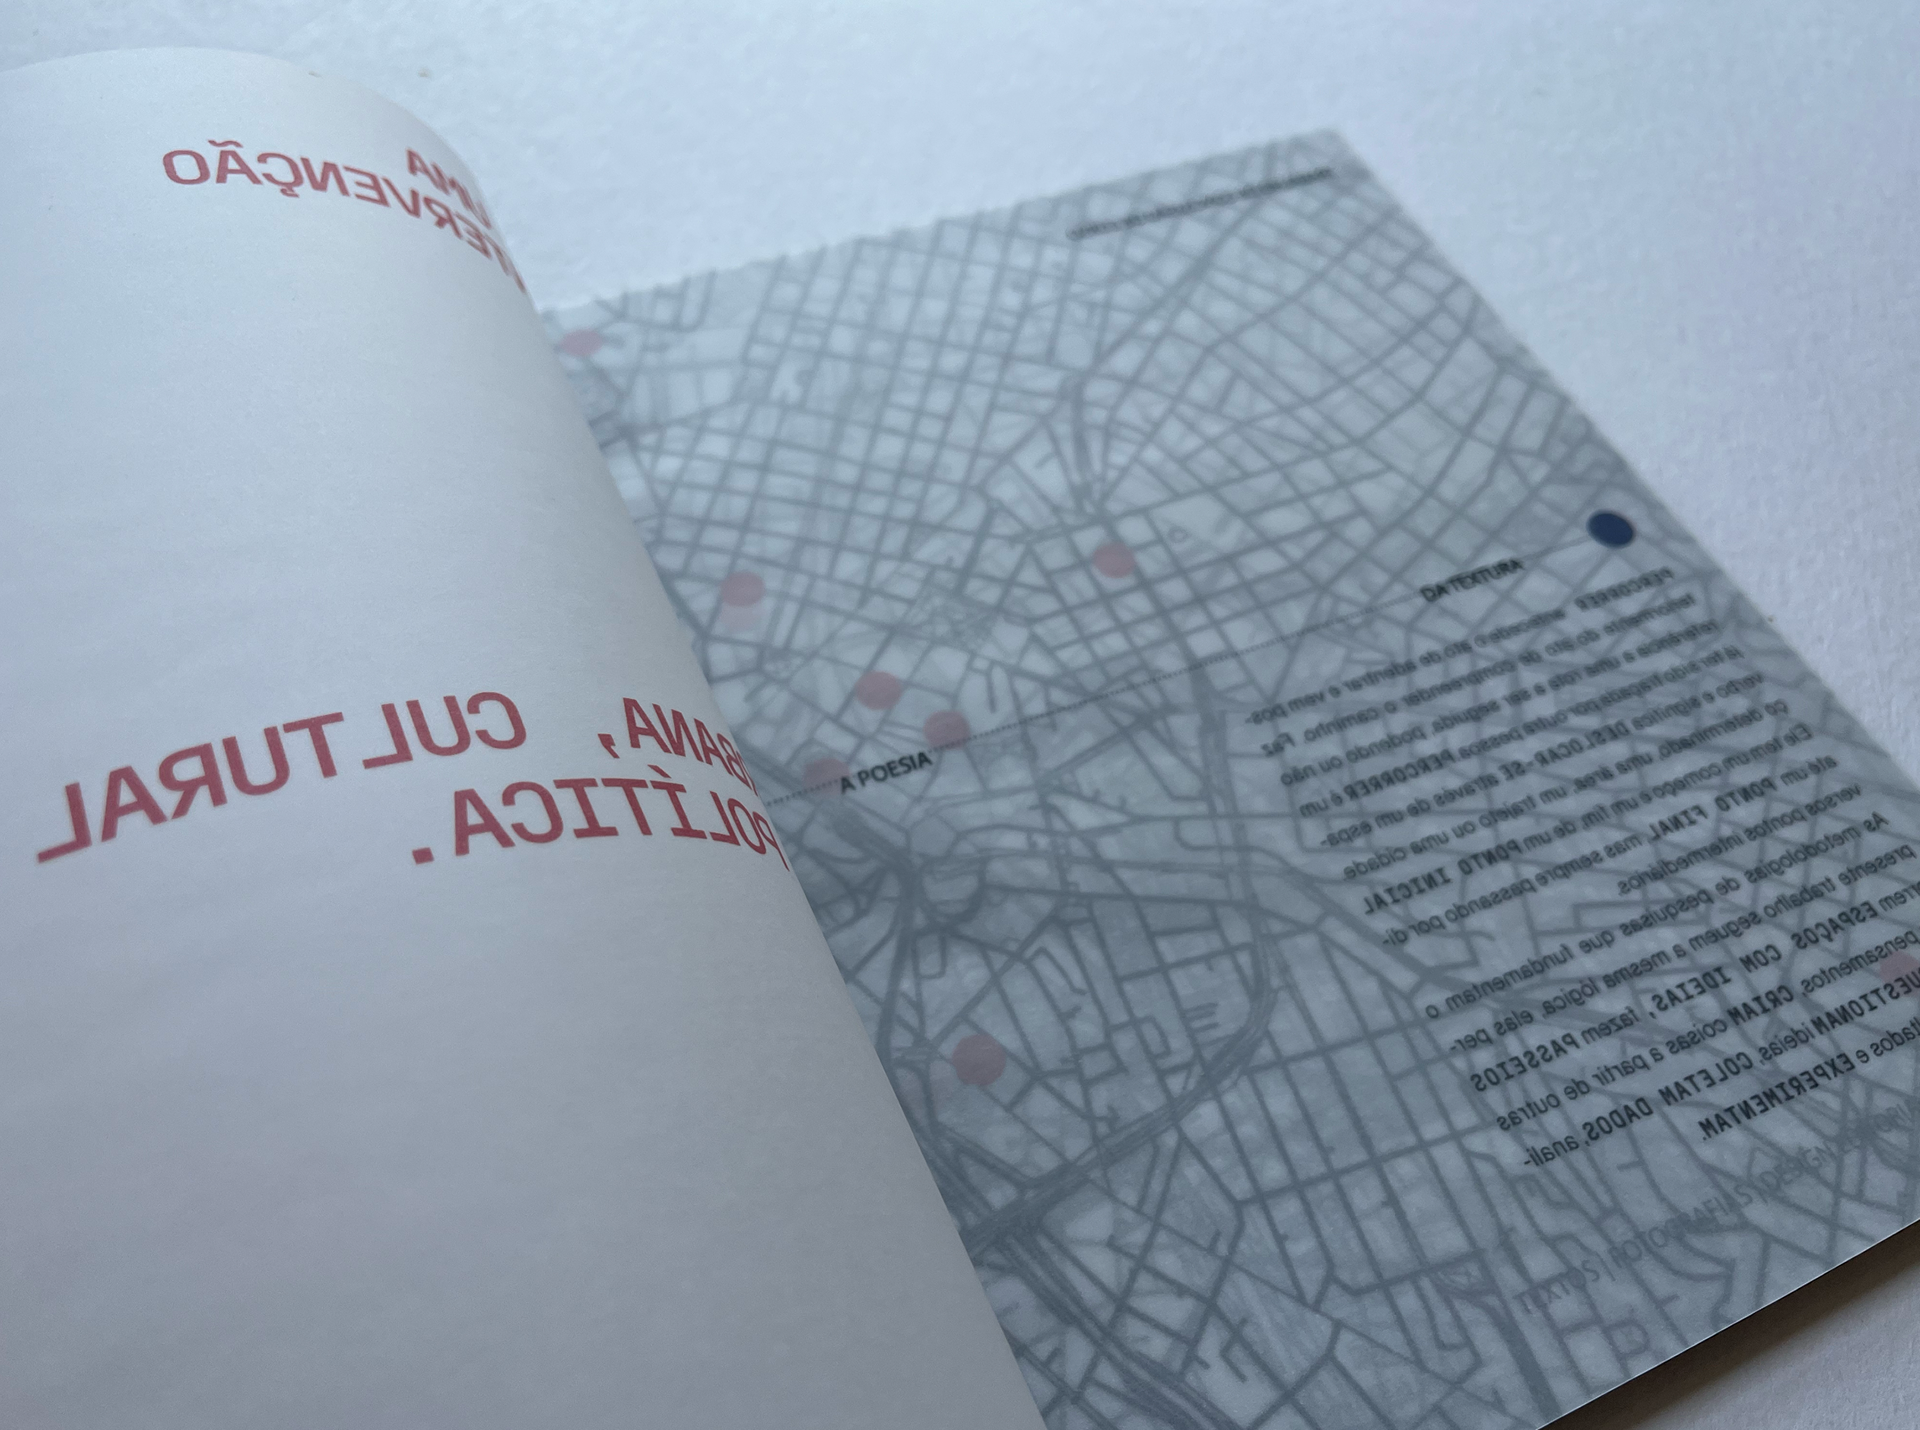 UMA
TERVENÇÃO
BANA, CULTURAL
POLÍTICA.
A POESIA
DA TEXTURA
PERCORRER antecede o ato de adentrar e vem pos-
teriormente do ato de compreender o caminho. Faz
referência a uma rota a ser seguida, podendo ou não
já ter sido traçada por outra pessoa PERCORRER é um
verbo e significa DESLOCAR-SE através de um espa-
ço determinado, uma área, um trajeto ou uma cidade.
Ele tem um começo e um fim, de um PONTO INICIAL
até um PONTO FINAL mas sempre passando por di-
versos pontos intermediários.
As metodologias de pesquisas que fundamentam o
presente trabalho seguem a mesma lógica, elas per-
rrem ESPAÇOS COM IDEIAS, fazem PASSEIOS
pensamentos, CRIAM coisas a partir de outras
UESTIONAM ideias, COLETAM DADOS, anali-
ltados e EXPERIMENTAM.
TEXTOS | FOTOGRAFIAS | DESIGN